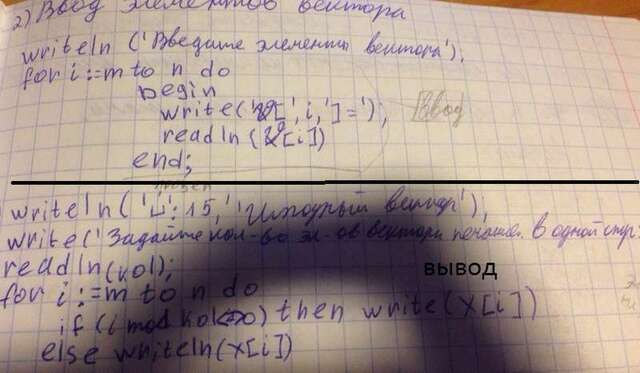 2) Ввод элементов вектора
writeln ('Введите элементы вектора');
for i:=m to n do
begin
write('[',i,']=');
readln ([i])
end;
Ввод
пробел
writeln('␣':15,'Исходный вектор');
write('Задайте кол-во эл-ов вектора в одной стр:
readln(kol);
вывод
for i:=m to n do
if (i mod kol<>0) then write(x[i])
else writeln(x[i])